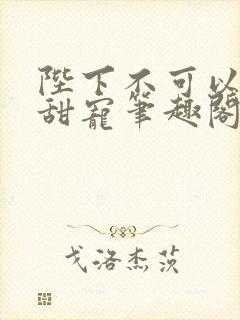 陛下不可以
甜寵筆趣閣
戈洛杰茨